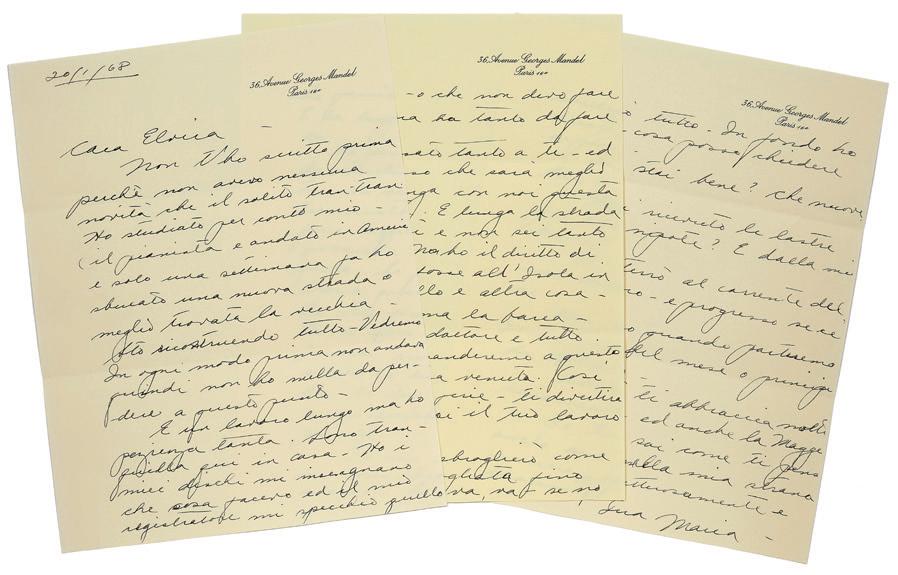 20/1/68
36, Avenue Georges Mandel
Paris 16e
Cara Elvira -
Non t'ho scritto prima
perchè non avevo nessuna
novità che il solito tran-tran
Ho studiato per conto mio -
(il pianista e andato in Americ
e solo una settimana fa ho
sbucato una nuova strada o
meglio trovata la vecchia -
Sto ricostruendo tutto - Vedremo
In ogni modo prima non andava
quindi non ho nulla da per-
dere a questo punto -
E un lavoro lungo ma ho
pazienza tanta. Sono tran-
quilla qui in casa - Ho i
miei dischi mi insegnano
che cosa facevo ed il mio
registratore mi specchio quello
36, Avenue Georges Mandel
Paris 16e
-o che non devo fare
ha tanto da fare
tanto a te - ed
so che sarà meglio
con noi questa
E lunga la strada
i e non sei tanto
ho il diritto di
fosse all'Isola in
e altra cosa -
ma la barca -
e tutto.
a questo
a venuta. Cosi
ti divertirai
il tuo lavoro
come
fino
va, va se no
36, Avenue Georges Mandel
Paris 16e
tutto - In fondo ho
cosa posso chiedere
stai bene? Che nuove
ricevuto le lastre
E dalla mi
al corrente del
e progresso se ce
quando partiremo
del mese o principi
ti abbraccia molti
ed anche la Magge
sai come ti pens
alla mia strana
e
Tua Maria -